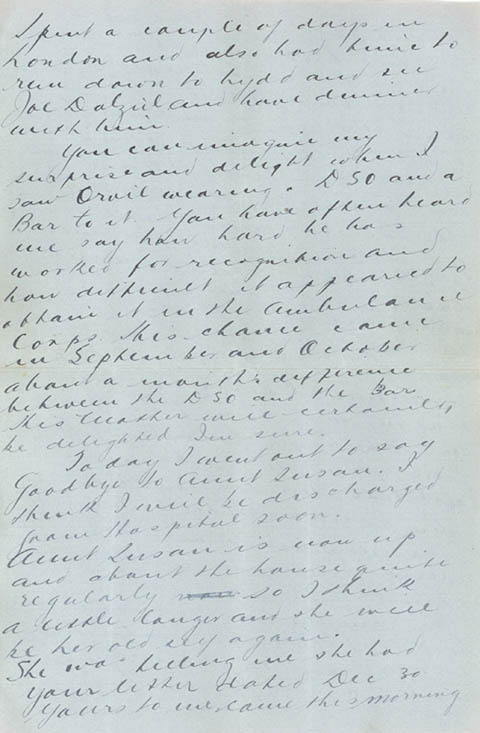 Spent a couple of days in
London and also had time to
run down to Lydd and see
Joe Dalziel and have dinner
with him.
You can imagine my
surprise and delight when I
saw Orvil wearing a DSO and a
Bar to it. You have often heard
me say how hard he has
worked for recognition and
how difficult it appeared to
obtain it in the Ambulance
Corps. His chance came
in September and October
about a month's difference
between the DSO and the Bar
His Mother will certainly
be delighted I'm sure.
Today I went out to say
Goodbye to Aunt Susan. I
think I will be discharged
from Hospital soon.
Aunt Susan is now up
and about the house quite
regularly so I think
a little longer and she will
be her old self again.
She was telling me she had
your letter dated Dec 30
Yours to me came this morning